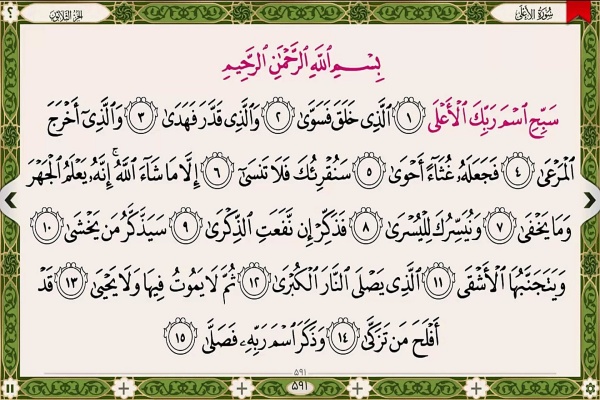 سُورَةُ الأَعْلَىٰ
الجُزْءُ الثَّلَاثُونَ
؟
بِسْمِ ٱللَّهِ ٱلرَّحْمَٰنِ ٱلرَّحِيمِ
سَبِّحِ ٱسْمَ رَبِّكَ ٱلْأَعْلَى ١ ٱلَّذِى خَلَقَ فَسَوَّىٰ ٢ وَٱلَّذِى قَدَّرَ فَهَدَىٰ ٣ وَٱلَّذِىٓ أَخْرَجَ
ٱلْمَرْعَىٰ ٤ فَجَعَلَهُۥ غُثَآءً أَحْوَىٰ ٥ سَنُقْرِئُكَ فَلَا تَنسَىٰٓ ٦ إِلَّا مَا شَآءَ ٱللَّهُ ۚ إِنَّهُۥ يَعْلَمُ ٱلْجَهْرَ
وَمَا يَخْفَىٰ ٧ وَنُيَسِّرُكَ لِلْيُسْرَىٰ ٨ فَذَكِّرْ إِن نَّفَعَتِ ٱلذِّكْرَىٰ ٩ سَيَذَّكَّرُ مَن يَخْشَىٰ ١٠
وَيَتَجَنَّبُهَا ٱلْأَشْقَى ١١ ٱلَّذِى يَصْلَى ٱلنَّارَ ٱلْكُبْرَىٰ ١٢ ثُمَّ لَا يَمُوتُ فِيهَا وَلَا يَحْيَىٰ ١٣ قَدْ
أَفْلَحَ مَن تَزَكَّىٰ ١٤ وَذَكَرَ ٱسْمَ رَبِّهِۦ فَصَلَّىٰ ١٥
٥٩١
٥٩١